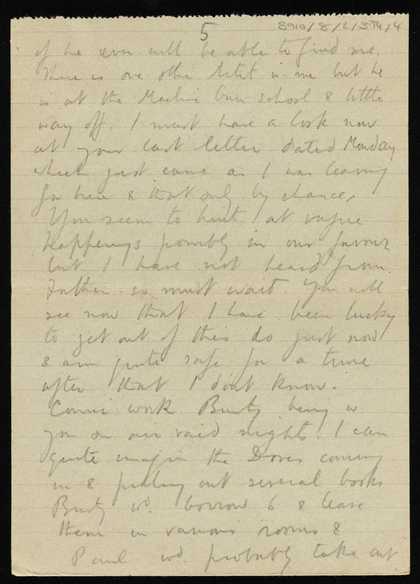 5
8910/8/1/374/4
if he ever will be able to find me.
There is one other Artist in me but he
is at the Machine Gun school & little
way off. I must have a look now
at your last letter dated Monday
which just came as I was leaving
for here & that only by chance,
You seem to hint at vague
happenings possibly in our favour
but I have not heard from
Father so must wait. You will
see now that I have been lucky
to get out of this do just now
& am quite safe for a time
after that I dont know.
work Bunty being w
you on air raid nights. I can
quite imagine the Doves coming
in & pulling out several books
Bunty wd. borrow 6 & leave
them in various rooms &
Paul wd. probably take out